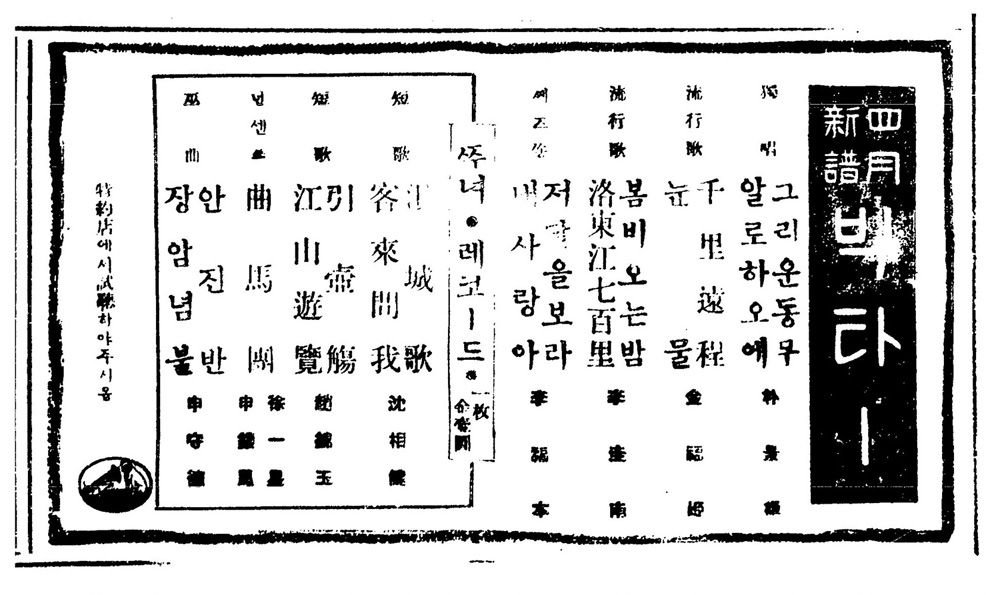 四月
新譜
빅타ー
獨唱
그리운동무
알로하오에
流行歌
千里遠程
눈물
流行歌
봄비오는밤
洛東江七百里
저달을보라
내사랑아
李福本
레코ー드
一枚
短歌
城歌
客來問我
沈相健
短歌
引壺觴
江山遊覽
趙錦玉
넌센스
曲馬團
徐一星
申銀鳳
巫曲
안진반
장암념불
申守德
特約店에서試聽하야주시옵